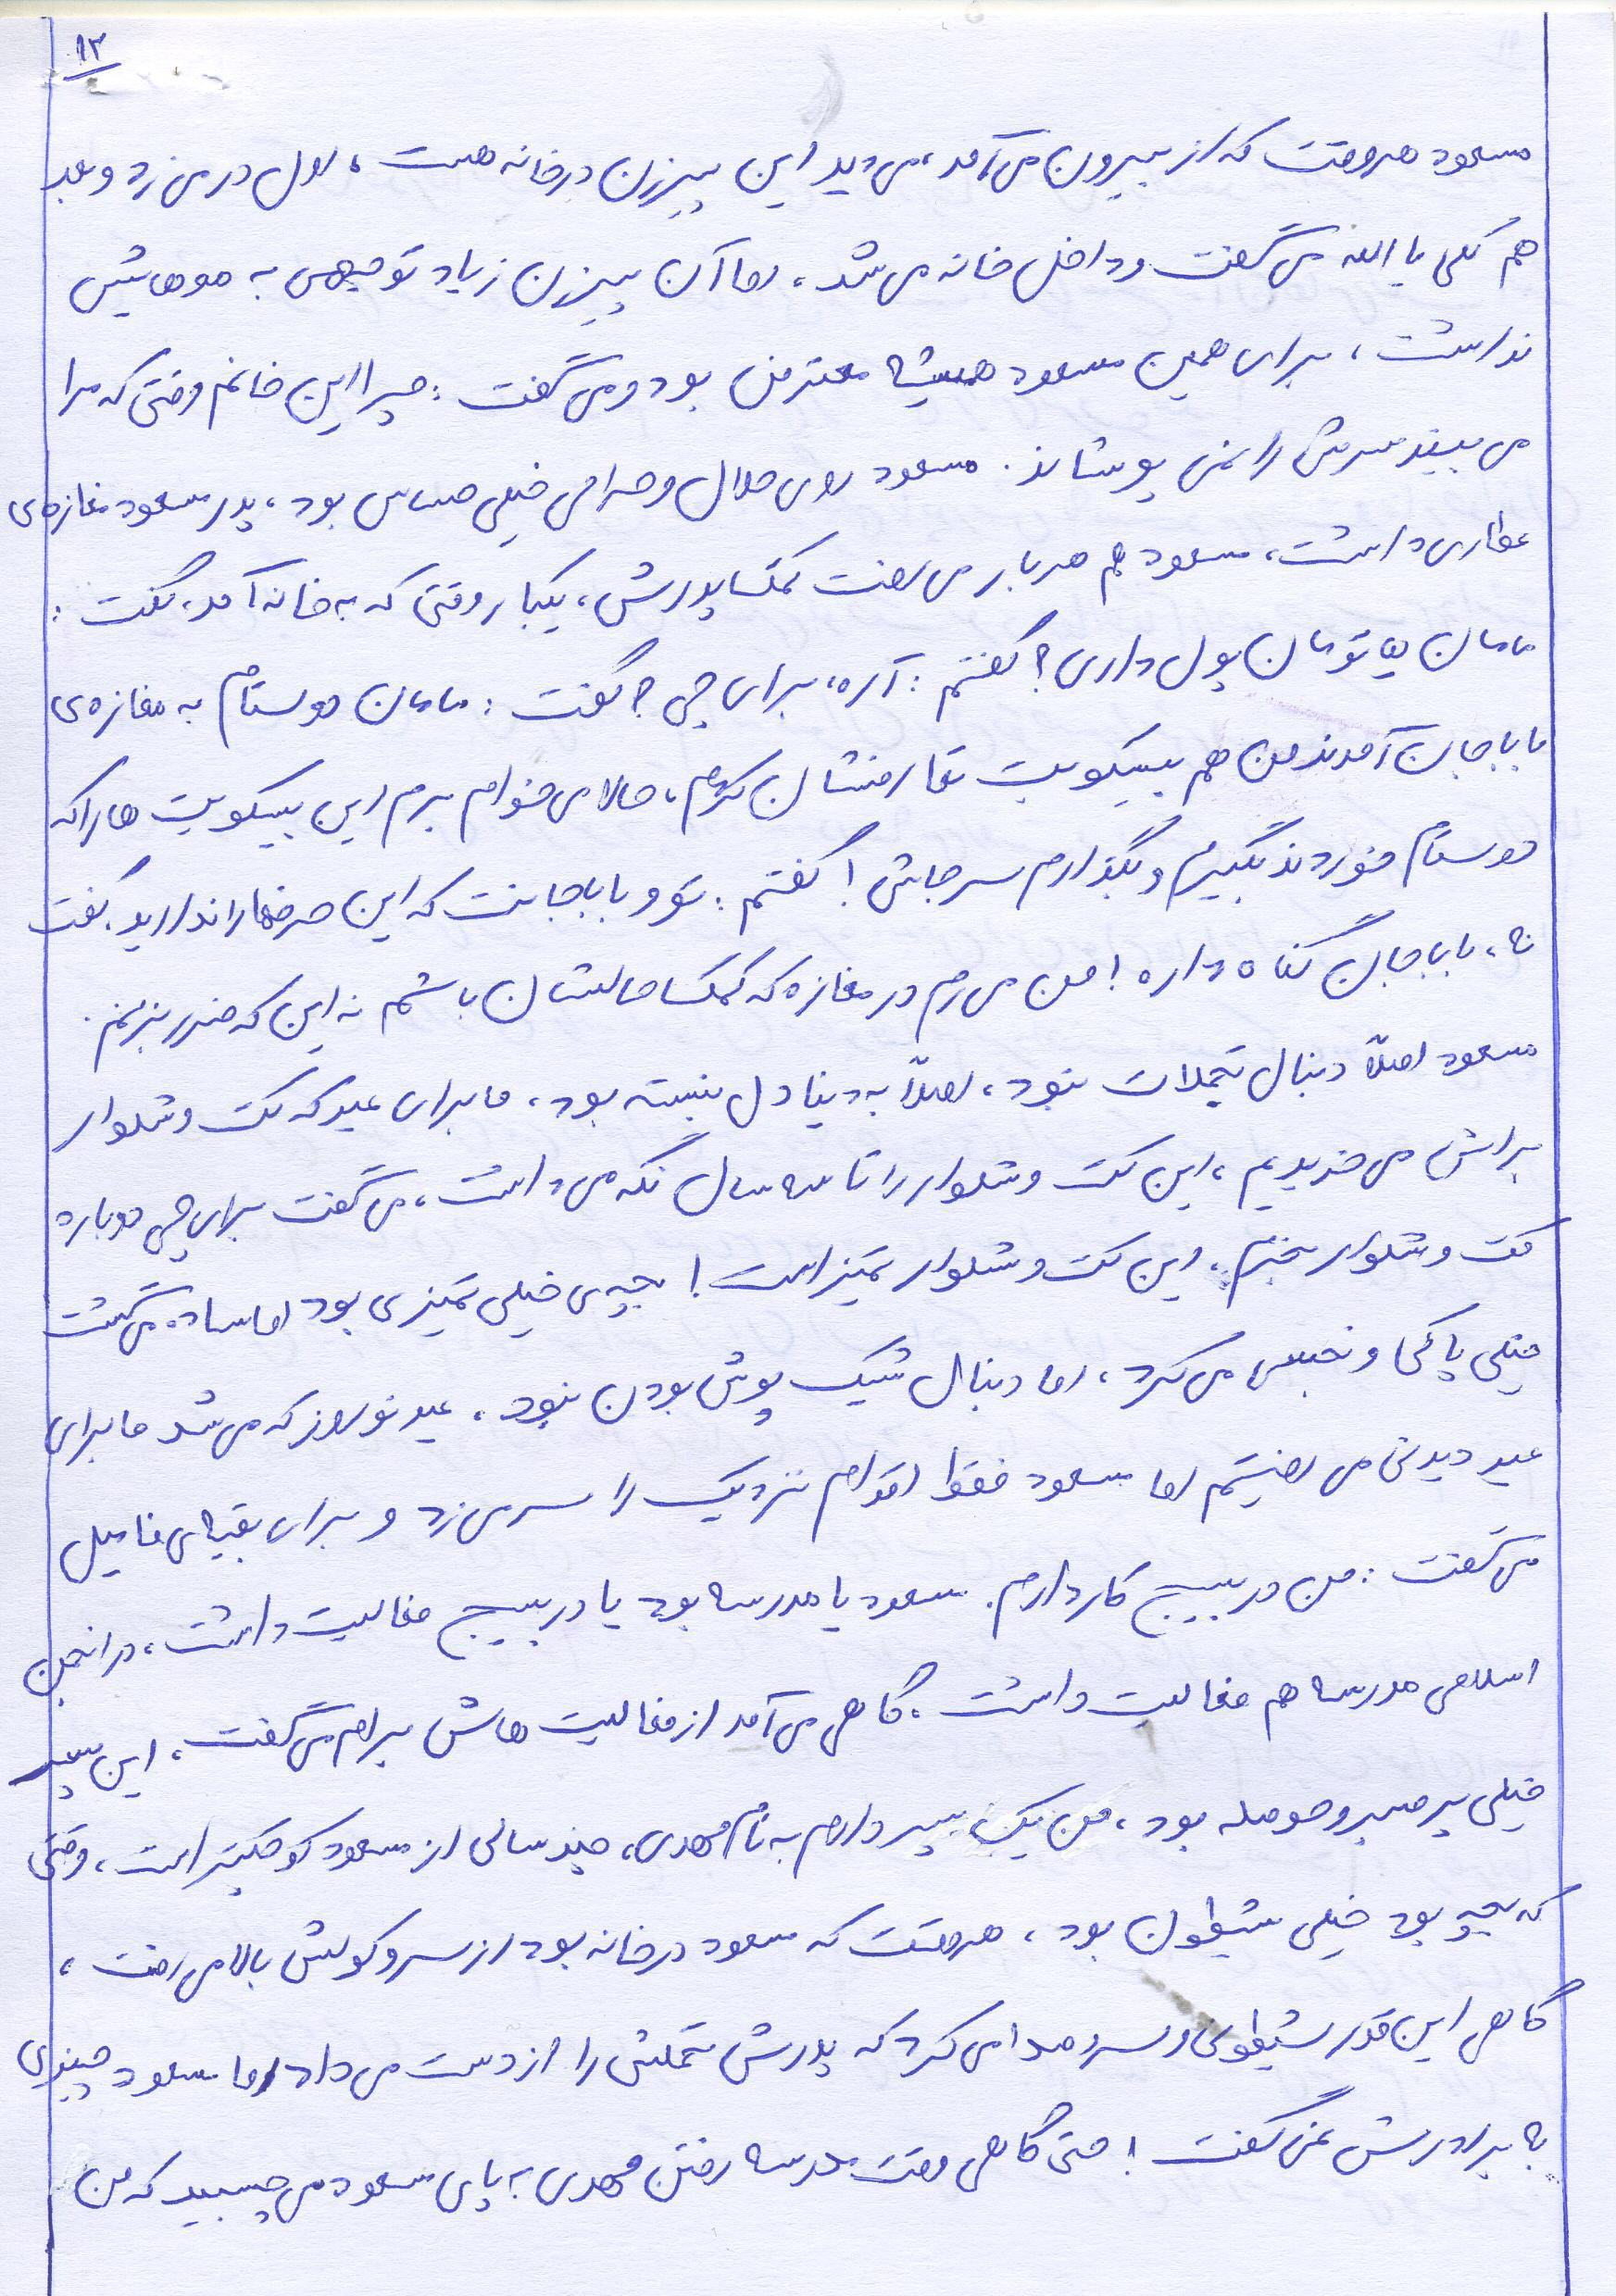 ۱۳
مسعود هروقت که از بیرون می‌آمد، می‌دید این پیرزن در خانه هست، اول در می‌زد و بعد
هم کلی یا الله می‌گفت و داخل خانه می‌شد، اما آن پیرزن زیاد توجهی به موهایش
نداشت، برای همین مسعود همیشه معترض بود و می‌گفت: چرا این خانم وقتی که مرا
می‌بیند سرش را نمی‌پوشاند. مسعود روی حلال و حرامی خیلی حساس بود، پدر مسعود مغازه‌ی
عطاری داشت، مسعود هم هربار می‌رفت کمک پدرش، یکبار وقتی که به خانه آمد، گفت:
مامان ۵ تومان پول داری؟ گفتم: آره، برای چی؟ گفت: مامان دوستام به مغازه‌ی
باباجان آمدند من هم بیسکویت تعارفشان کردم، حالا می‌خوام برم این بیسکویت ها را که
دوستام خوردند بگیرم و بگذارم سرجاش! گفتم: تو و باباجانت که این حرفها را ندارید. گفت
نه، باباجان گناه داره! من می‌رم در مغازه که کمک حالشان باشم نه این که ضرر بزنم.
مسعود اصلاً دنبال تجملات نبود، اصلاً به دنیا دل نبسته بود، ما برای عید که کت و شلوار
براش می‌خریدیم، این کت و شلوار را تا سه سال نگه می‌داشت، می‌گفت برای چی دوباره
کت و شلوار بخرم، این کت و شلوار تمیز است! بچه‌ی خیلی تمیزی بود اما ساده می‌گشت
خیلی پاکی و نجسی می‌کرد، اما دنبال شیک پوش بودن نبود. عید نوروز که می‌شد ما برای
عید دیدنی می‌رفتیم اما مسعود فقط اقوام نزدیک را سر می‌زد و برای بقیه‌ی فامیل
می‌گفت: من در بسیج کار دارم. مسعود یا مدرسه بود یا در بسیج فعالیت داشت، در انجمن
اسلامی مدرسه هم فعالیت داشت، گاهی می‌آمد از فعالیت هاش برام می‌گفت، این پسر
خیلی پر صبر و حوصله بود، من یک پسر دارم به نام مهدی، چند سالی از مسعود کوچکتر است، وقتی
که بچه بود خیلی شیطون بود، هروقت که مسعود در خانه بود از سر و کولش بالا می‌رفت،
گاهی این قدر شیطونی و سروصدا می‌کرد که پدرش تحملش را از دست می‌داد اما مسعود چیزی
به برادرش نمی‌گفت! حتی گاهی وقت مدرسه رفتن مهدی به پای مسعود می‌چسبید که من